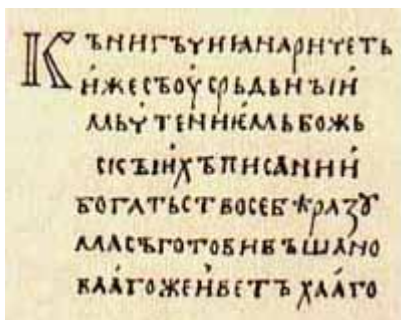 КЪНИГЪЧИІАНАРИЧЕТЬ
И҆ЖЕСЪОУ҆СРЬДЬНЪІИ҆
МЬУ҆ТЕНИѤ҆МЬБОЖЬ
СКЪІИ҆ХЪПИСА҆НИИ҆
БОГАТЬСТВОСЕБѢРАЗꙋ
МАСЪГОТОВИВЪШАНО
ВАА҆ГОЖЕИ҆ВЕТЪХАА҆ГО